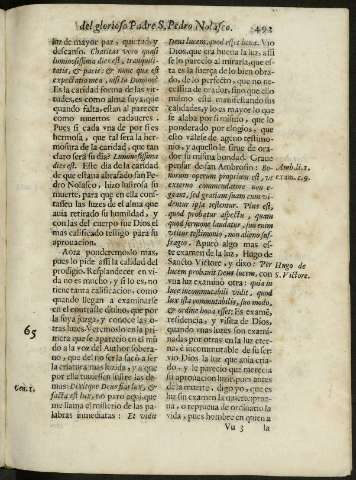 del glorioso Padre S. Pedro Nolasco. 492
luz de mayor paz, quietad y
descanso. Charitas vero quasi
luminosissima dies est, tranquilitatis,
& pacis: & nunc que est
Es la caridad forma de las virtudes,
es como alma suya, que
quando falta, estan al parecer
como muertos cadaueres.
Pues si cada vna de por si es
hermosa, que tal serà la hermosura
de la caridad, que tan
claro serà su dia? Luminosissima
dies est. Este dia de la caridad
de que estaua abrasado san Pedro
Nolasco, hizo lustrosa su
muerte, para que en ella constassen
las luzes de el alma que
auia retirado su humildad, y
con las del cuerpo fue Dios el
mas calificado testigo para su
aprouacion.
Aora ponderemoslo mas,
pues lo pide assi la calidad del
prodigio. Resplandecer en vida
no es mucho, y si lo es, no
tiene tanta calificacion, como
quando llegan a examinarse
en el contraste diuino, que por
la suya juzga, y conoce las otras
luzes. Veremoslo en la primera
que se aparecio en el mundo
a la voz del Author soberano,
que del no ser la sacò a ser
la criatura mas luzida, y a que
por ella tuuiessen lustre las demas:
Dixitque Deus fiat lux, &
facta est lux, no paro aqui, que
me llama el misterio de las palabras
inmediatas: Et vidit
65
Gen. 1.
Deus lucem, quod esset bona. Vio
Dios, que era buena la luz, assi
se lo parecio al mirarla, que esta
es la fuerça de lo bien obrado,
de lo perfecto, que no ha
menester voz, que
sus
calidades, y lo es mayor lo que
se alaba por si mismo, que lo
ponderado por elogios, que
ello vàlese de ageno testimonio,
y aquello le sirue de orador
su misma bondad. Graue
pensar de san Ambrosio: Bonorum
operum proprium est, vt
externo commendatore non egeant,
sed gratiam suam cum videntur
ipsa testentur. Plus est,
quod probatur aspectu, quam
quod sermone laudatur, suo enim
vtitur testimonio, non alieno suffragio.
Apuro algo mas este
examen de la luz, Hugo de
Sancto Victore, y dixo: Per
lucem probauit Deus lucem, con
vna luz examinò otra: quia in
luce incommutabili vidit, quod
lux ista commutabilis, suo modo,
& ordine bona esset: Es examẽ,
residencia, y visita de Dios,
quando vnas luzes son examinadas
por otras en la luz eterna,
è incommutable de su ser
vio Dios la luz que auia criado,
y le parecio que merecia
su aprouacion luz, pues antes
a la muerte, digo yo, que es
su luz examen la muerte aprueua,
o reprueua de ordinario la
vida, pues hombre en quien a
Amb. li. 1.
exam. c. 9.
Hugo de
S. Victore.
Vu 3 la